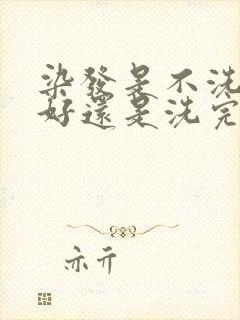 染發是不洗
好還是洗完
亦亓